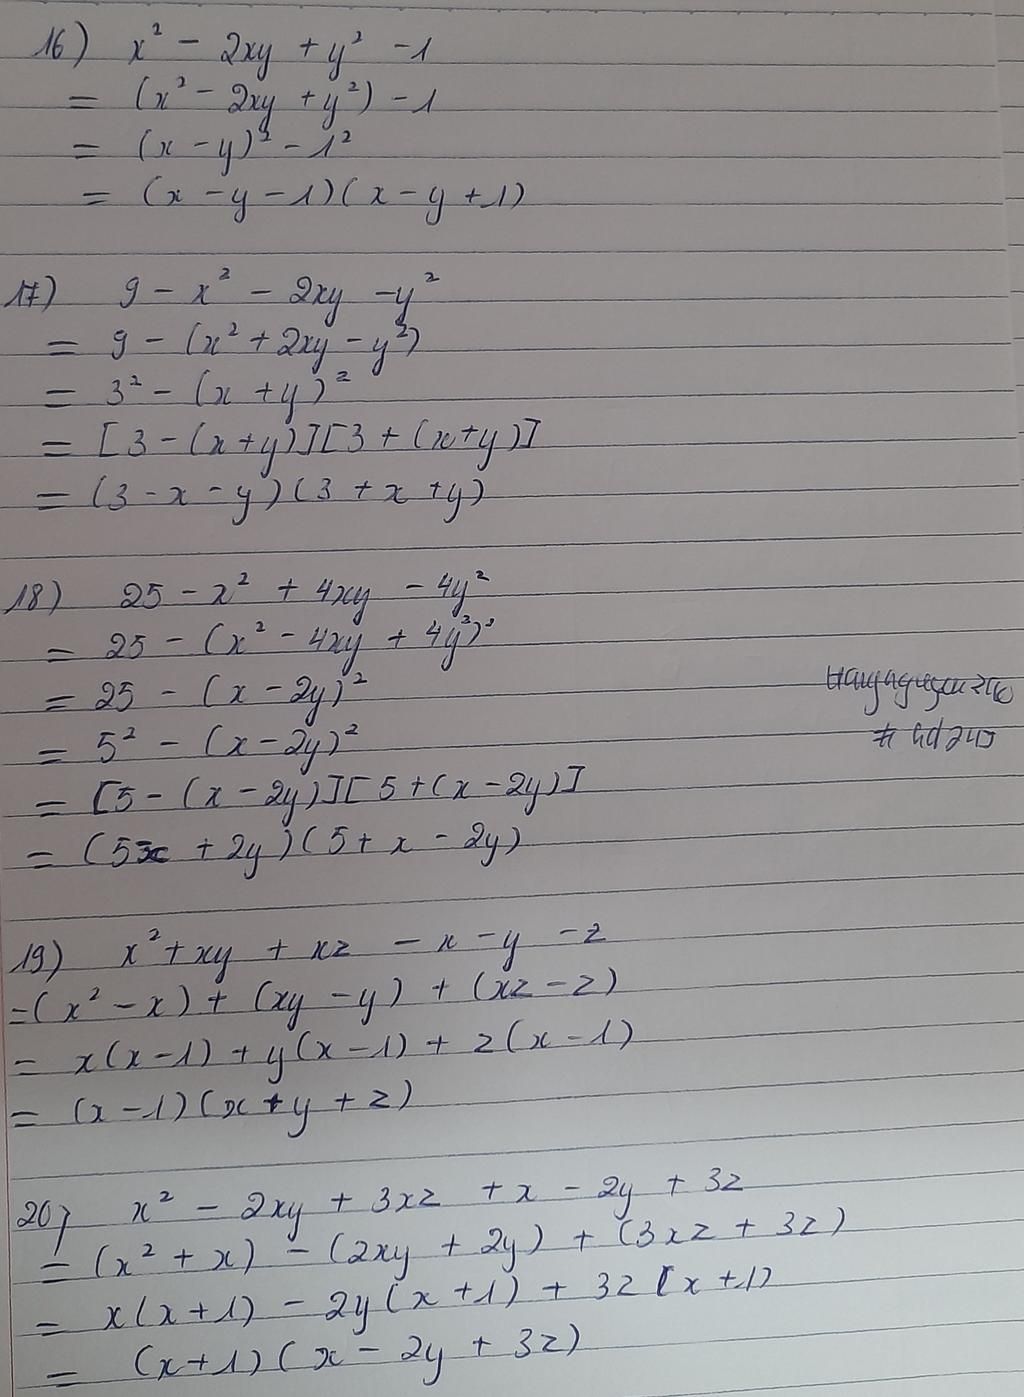 16) x² - 2xy + y² - 1
= (x² - 2xy + y²) - 1
= (x - y)² - 1²
= (x - y - 1)(x - y + 1)
17) 9 - x² - 2xy - y²
= 9 - (x² + 2xy - y²)
= 3² - (x + y)²
= [3 - (x + y)][3 + (x + y)]
= (3 - x - y)(3 + x + y)
18) 25 - x² + 4xy - 4y²
= 25 - (x² - 4xy + 4y²)
= 25 - (x - 2y)²
= 5² - (x - 2y)²
= [5 - (x - 2y)][5 + (x - 2y)]
= (5 - x + 2y)(5 + x - 2y)
19) x² + xy + xz - x - y - z
= (x² - x) + (xy - y) + (xz - z)
= x(x - 1) + y(x - 1) + z(x - 1)
= (x - 1)(x + y + z)
20) x² - 2xy + 3xz + x - 2y + 3z
= (x² + x) - (2xy + 2y) + (3xz + 3z)
= x(x + 1) - 2y(x + 1) + 3z(x + 1)
= (x + 1)(x - 2y + 3z)